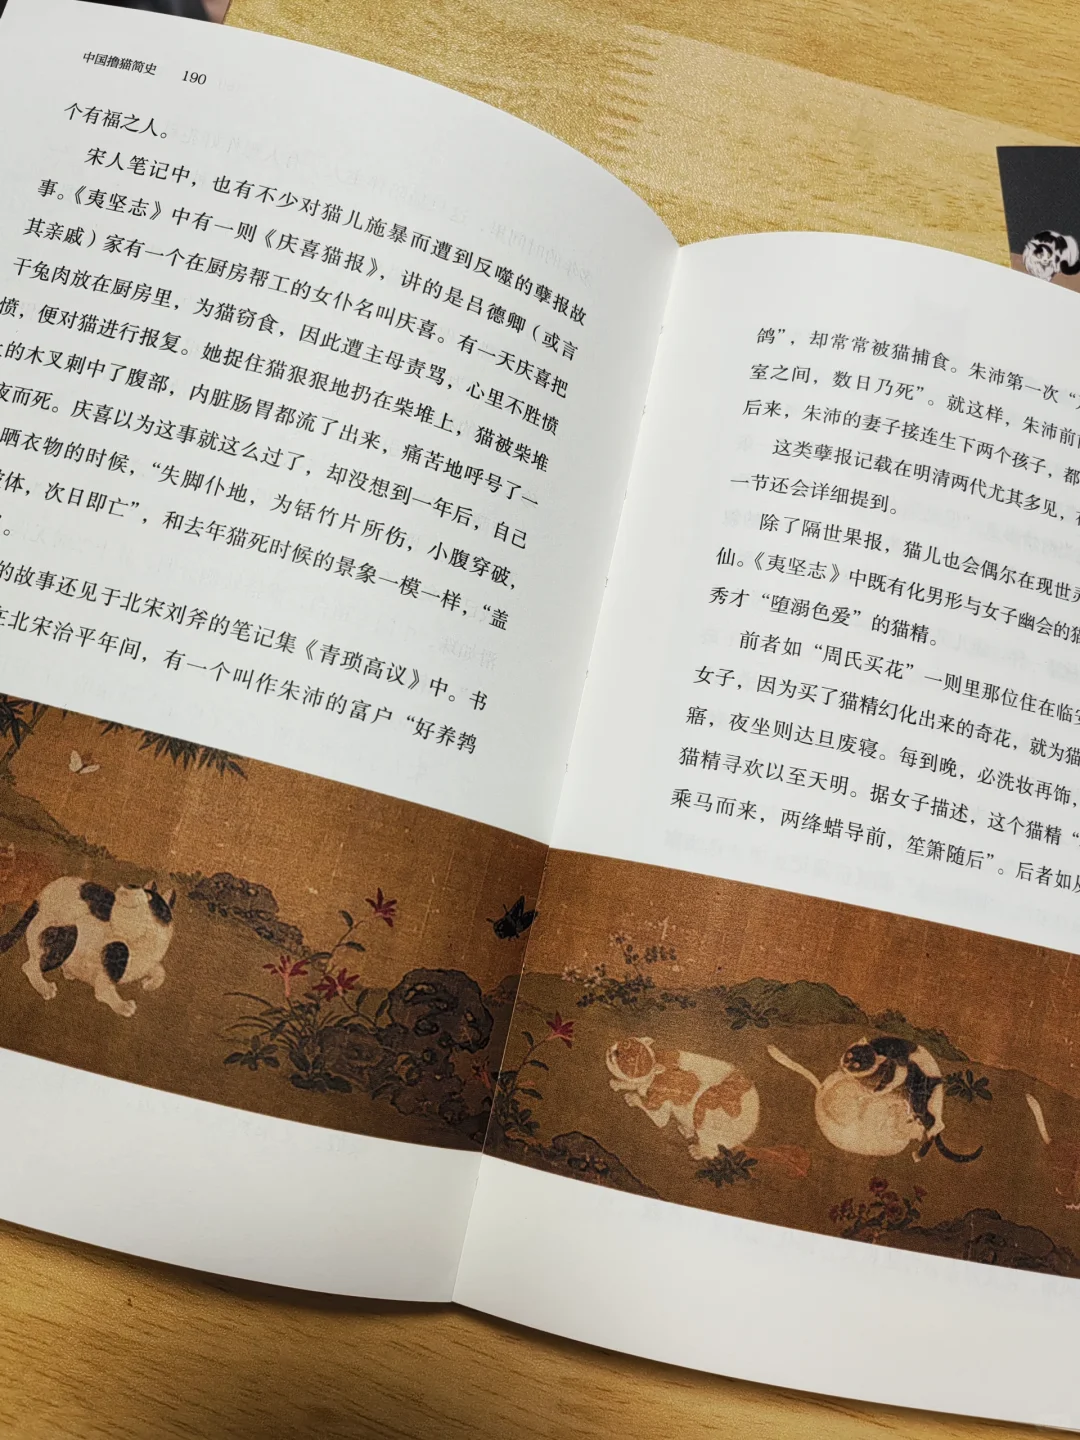 中国撸猫简史 190
个有福之人。
宋人笔记中，也有不少对猫儿施暴而遭到反噬的孽报故
事。《夷坚志》中有一则《庆喜猫报》，讲的是吕德卿（或言
其亲戚）家有一个在厨房帮工的女仆名叫庆喜。有一天庆喜把
干兔肉放在厨房里，为猫窃食，因此遭主母责骂，心里不胜愤
愤，便对猫进行报复。她捉住猫狠狠地扔在柴堆上，猫被柴堆
的木叉刺中了腹部，内脏肠胃都流了出来，痛苦地呼号了一
夜而死。庆喜以为这事就这么过了，却没想到一年后，自己
晒衣物的时候，“失脚仆地，为铦竹片所伤，小腹穿破，
体，次日即亡”，和去年猫死时候的景象一模一样，“盖
”。
的故事还见于北宋刘斧的笔记集《青琐高议》中。书
在北宋治平年间，有一个叫作朱沛的富户“好养鹁
鸽”，却常常被猫捕食。朱沛第一次“
室之间，数日乃死”。就这样，朱沛前
后来，朱沛的妻子接连生下两个孩子，都
这类孽报记载在明清两代尤其多见，
一节还会详细提到。
除了隔世果报，猫儿也会偶尔在现世灵
仙。《夷坚志》中既有化男形与女子幽会的猫
秀才“堕溺色爱”的猫精。
前者如“周氏买花”一则里那位住在临安
女子，因为买了猫精幻化出来的奇花，就为猫
寤，夜坐则达旦废寝。每到晚，必洗妆再饰，
猫精寻欢以至天明。据女子描述，这个猫精“
乘马而来，两绛蜡导前，笙箫随后”。后者如